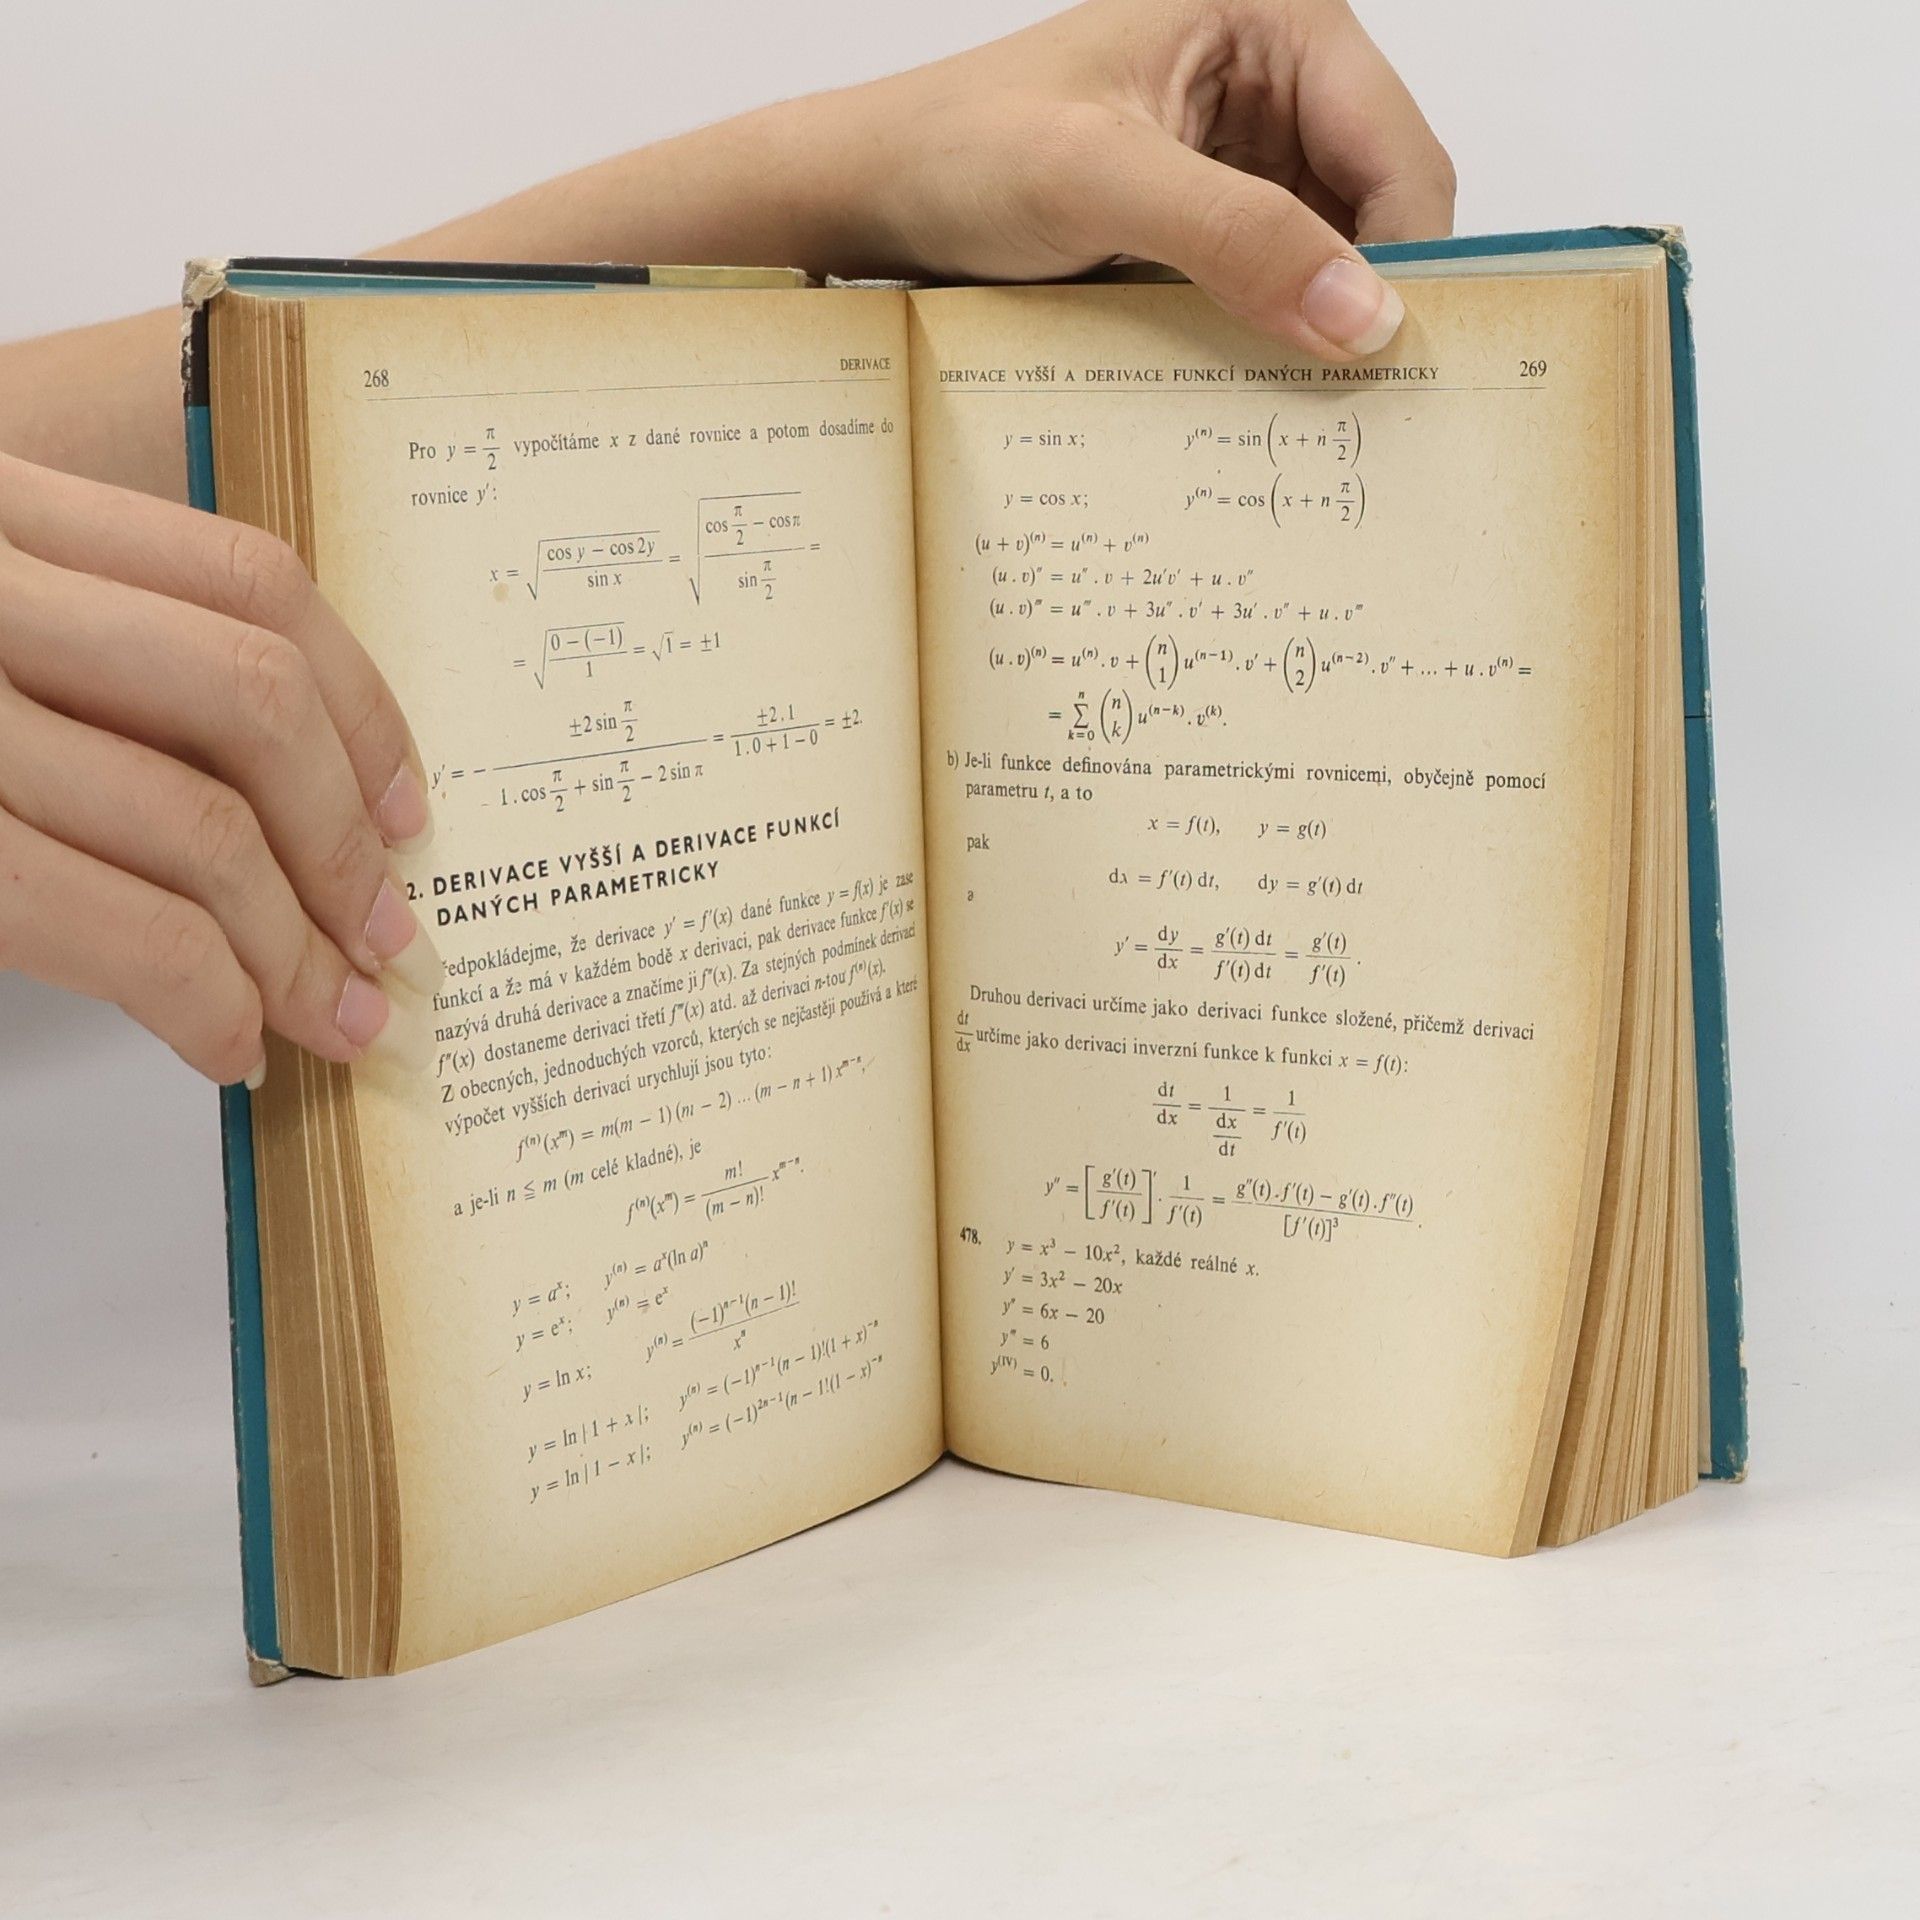 268 DERIVACE
Pro y = π/2 vypočítáme x z dané rovnice a potom dosadíme do
rovnice y′:
x = √((cos y − cos 2y)/(sin x)) = √((cos π/2 − cos π)/(sin π/2)) =
= √((0 − (−1))/1) = √1 = ±1
y′ = − (±2 sin π/2)/(1 . cos π/2 + sin π/2 − 2 sin π) = (±2 . 1)/(1 . 0 + 1 − 0) = ±2.
2. DERIVACE VYŠŠÍ A DERIVACE FUNKCÍ
DANÝCH PARAMETRICKY
ředpokládejme, že derivace y′ = f′(x) dané funkce y = f(x) je zase
funkcí a že má v každém bodě x derivaci, pak derivace funkce f′(x) se
nazývá druhá derivace a značíme ji f″(x). Za stejných podmínek derivací
f″(x) dostaneme derivaci třetí f‴(x) atd. až derivaci n-tou f⁽ⁿ⁾(x).
Z obecných, jednoduchých vzorců, kterých se nejčastěji používá a které
výpočet vyšších derivací urychlují jsou tyto:
f⁽ⁿ⁾(xᵐ) = m(m − 1) (m − 2) ... (m − n + 1) xᵐ⁻ⁿ,
a je-li n ≦ m (m celé kladné), je
f⁽ⁿ⁾(xᵐ) = m!/(m − n)! xᵐ⁻ⁿ.
y = aˣ; y⁽ⁿ⁾ = aˣ(ln a)ⁿ
y = eˣ; y⁽ⁿ⁾ = eˣ
y = ln x; y⁽ⁿ⁾ = (−1)ⁿ⁻¹(n − 1)!/xⁿ
y = ln | 1 + x |; y⁽ⁿ⁾ = (−1)ⁿ⁻¹(n − 1)!(1 + x)⁻ⁿ
y = ln | 1 − x |; y⁽ⁿ⁾ = (−1)²ⁿ⁻¹(n − 1!(1 − x)⁻ⁿ
DERIVACE VYŠŠÍ A DERIVACE FUNKCÍ DANÝCH PARAMETRICKY 269
y = sin x; y⁽ⁿ⁾ = sin (x + n π/2)
y = cos x; y⁽ⁿ⁾ = cos (x + n π/2)
(u + v)⁽ⁿ⁾ = u⁽ⁿ⁾ + v⁽ⁿ⁾
(u . v)″ = u″ . v + 2u′v′ + u . v″
(u . v)‴ = u‴ . v + 3u″ . v′ + 3u′ . v″ + u . v‴
(u . v)⁽ⁿ⁾ = u⁽ⁿ⁾ . v + (n 1) u⁽ⁿ⁻¹⁾ . v′ + (n 2) u⁽ⁿ⁻²⁾ . v″ + ... + u . v⁽ⁿ⁾ =
= Σ k=0 n (n k) u⁽ⁿ⁻ᵏ⁾ . v⁽ᵏ⁾.
b) Je-li funkce definována parametrickými rovnicemi, obyčejně pomocí
parametru t, a to
x = f(t), y = g(t)
pak
dx = f′(t) dt, dy = g′(t) dt
a
y′ = dy/dx = g′(t) dt/f′(t) dt = g′(t)/f′(t) .
Druhou derivaci určíme jako derivaci funkce složené, přičemž derivaci
dt/dx určíme jako derivaci inverzní funkce k funkci x = f(t):
dt/dx = 1/(dx/dt) = 1/f′(t)
y″ = [g′(t)/f′(t)]′ . 1/f′(t) = (g″(t) . f′(t) − g′(t) . f″(t))/[f′(t)]³ .
478. y = x³ − 10x², každé reálné x.
y′ = 3x² − 20x
y″ = 6x − 20
y‴ = 6
y⁽ᴵⱽ⁾ = 0.